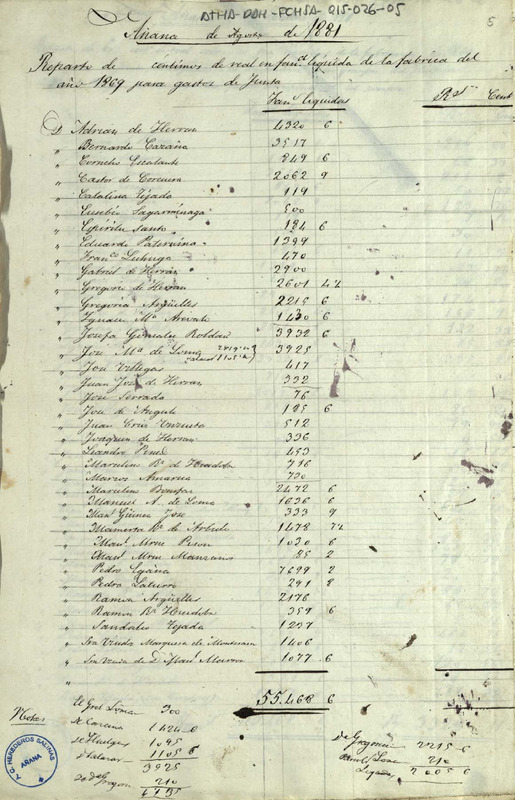 ATHA-DAH-FCHSA-215-026-05
5
Añana de Agosto de 1881
Reparto de centimos de real en fan.ª liquida de la fabrica del
año 1869 para gastos de Junta
Fan.s liquidas R.s Cent
D. Adrian de Herran 4320 6
" Bernardo Cazaña 3517
" Cornelio Escalante 849 6
" Castor de Corcuera 2062 9
" Catalina Tejada 119
" Eusebio Sagarminaga 500
" Espiritu Santo 184 6
" Eduardo Paternina 1399
" Fran.co 470
" Gabriel de Herrán 2900
" Gregorio de Herran 2601 4½
" Gregoria Argüelles 2215 6
" Ignacio M.ª Arevalo 1430 6
" Josefa Gonzalez Roldan 3932 6
" José M.ª de Loma 3925
" José Villegas 417
" Juan José de Herran 332
" José Serrada 76
" José de Angulo 185 6
" Juan Cruz Unzueta 512
" Joaquin de Herran 336
" Leandro Pinel 453
" Marcelino R.z de Heredia 716
" Marcos Amarica 730
" Marcelino 2472 6
" Manuel A. de Loma 1636 6
" Man.l Guinea José 333 9
" Mamerta R.z de Arbulo 1478 7½
" Man.l Mrne Pison 1030 6
" Man.l Mrne Manzanos 85 2
" Pedro Egaña 7699 2
" Pedro 291 8
" Ramon Argüelles 2176
" Ramon R.z Heredia 359 6
" Sandalio Tejada 1237
" Sra Viuda Marquesa de Montesa 1406
" Sra Viuda de D. Man.l Moreno 1077 6
"
55.468 6
Notas
el Gral Loma 900
de Cazana 1424 6
1095
Salazar 1105 6
3925
de Gregori 210
4135
De Gregoria 2215 6
210
2005 6
T.G. HEREDEROS SALINAS
AÑANA